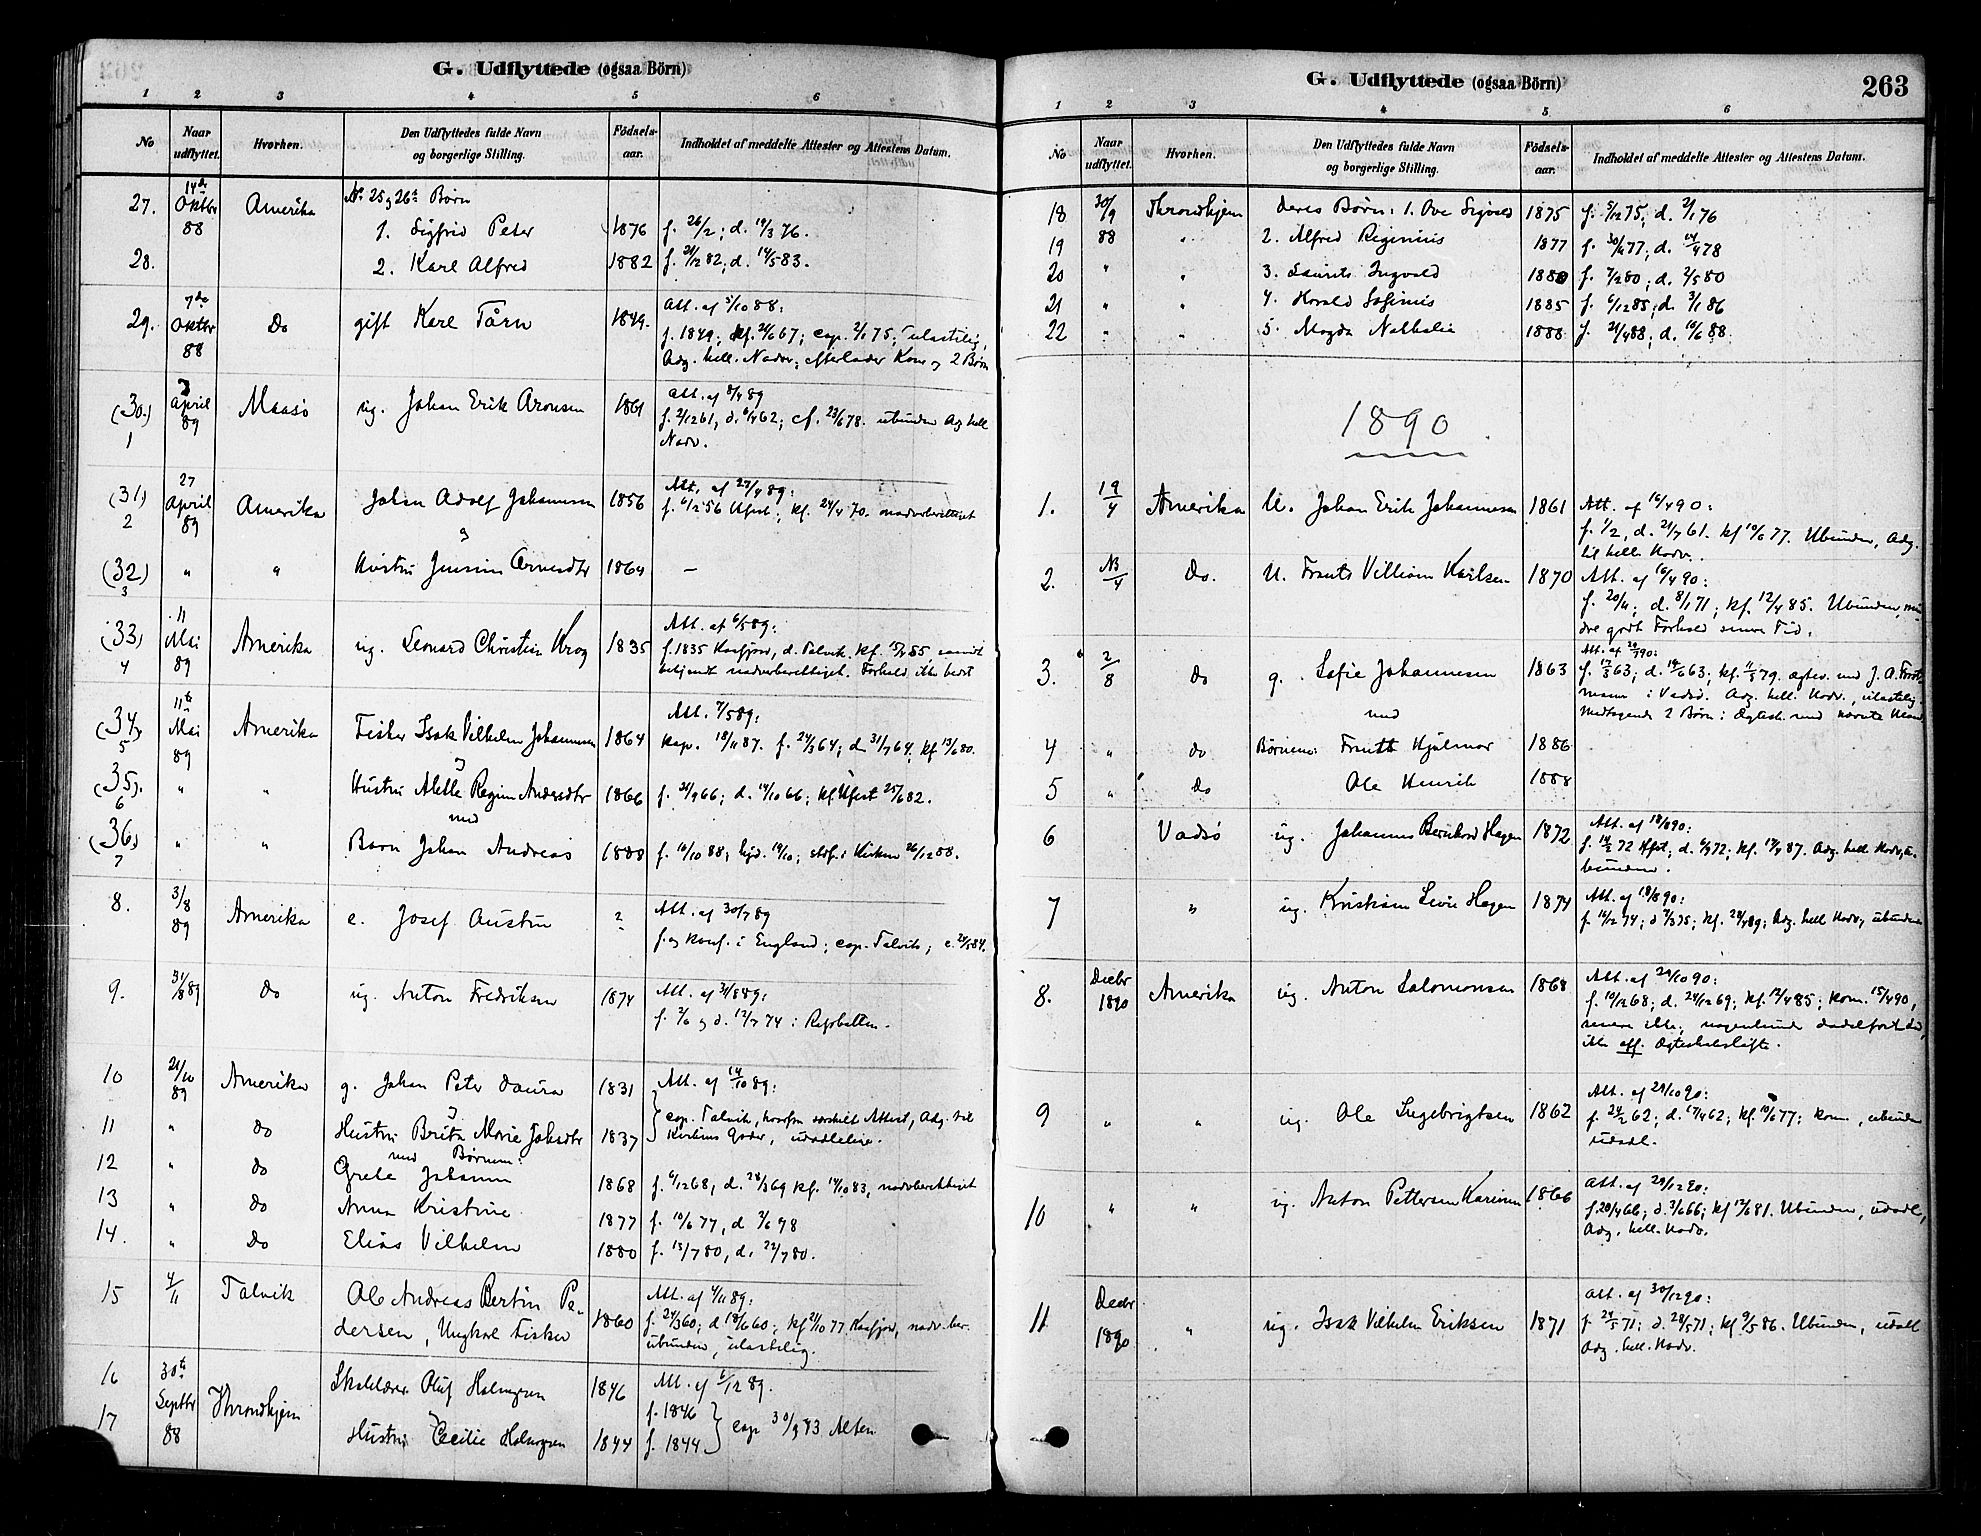 G. Udflyttede (ogsaa Börn)
1 2 3 4 5 6
No Naar udflyttet. Hvorhen. Den Udflyttedes fulde Navn og borgerlige Stilling. Födsels-aar. Indholdet af meddelte Attester og Attestens Datum.
27. 14de Oktbr 88 Amerika No 25 og 26s Børn
1. Sigfrid Peter 1876 f. 26/2; d. 19/3 76.
28. 2. Karl Alfred 1882 f. 21/12 82; d. 14/5 83.
29. 7de Oktbr 88 Do gift Karl Tårn 1849. Att. af 5/10 88:
f. 1849; kf. 24/6 67; cap. 2/1 75; ulastelig,
Adg. hell. Nadv.; efterlader Kone og 2 Børn
(30.) 1 April 89 Maasø ug. Johan Erik Aronsen 1861 Att. af 8/4 89
f. 2/12 61, d. 6/4 62; cf. 23/6 78. ubunden Adg hell
Nadv.
(31) 2 27 April 89 Amerika Johan Adolf Johannesen 1856 Att. af 27/4 89:
f. 6/12 56 Hfest; kf. 24/4 70. nadverberettiget
og
(32) 3 " " Hustru Jensine Arnesdtr 1864 —
(33) 4 11 Mai 89 Amerika ug. Leonard Christian Krog 1835 Att. af 6/5 89:
f. 1835 Kaafjord, d. Talvik. kf.
nadverberettiget. Forhold ikke bedst
(34) 5 11te Mai 89 Amerika Fisker Isak Vilhelm Johannesen 1864 Att. 7/5 89:
kop. 18/11 87. f. 24/3 64; d. 31/7 64; kf 13/6 80.
og
(35). 6 " " Hustru Alette Regine Andersdtr 1866 f. 21/9 66; d. 14/10 66; kf. Hfest 25/6 82.
med
(36) 7 " " Barn Johan Andreas 1888 f. 10/10 88; hjd. 19/10; stdf. i Kirken 26/12 88.
8. 3/8 89 Amerika e. Josef Austin ? Att. af 30/7 89
f. og konf. i England; cop. Talvik; e. 20/5 84.
9. 31/8 89 Do ug. Anton Fredriksen 1874 Att. af 31/8 89:
f. 2/6 og d. 12/7 74 i Refsbotten.
10 21/10 89 Amerika g. Johan Peter Daura 1831 Att. af 14/10 89:
og
cop. Talvik, hvorfra særskilt Attest, Adg. til
11 " Do Hustru Brita Marie Johsdtr 1837 Kirkens Goder, udadlelige.
med Børnene:
12 " Do Grete Johanne 1868 f. 6/12 68, d. 28/3 69 kf. 14/10 83, nadvberettiget
13 " Do Anna Kristine 1877 f. 10/6 77, d 3/6 78
14. " Do Elias Vilhelm 1880 f. 13/7 80, d. 22/7 80.
15 4/11 Talvik Ole Andreas Bertin Pe- Att. af 4/11 89:
dersen, Ungkarl Fisker 1860 f. 24/3 60; d 18/6 60; kf 21/10 77 Kaafjord, nadv. ber.
ubunden, ulastelig.
16 30te Septbr 88 Throndhjem Skolelærer Oluf Holmgren 1846 Att. af 6/12 89.
f. 1846
17 Hustru Cecilie Holmgren 1844 f. 1844 cop 30/9 73 Alten
G. Udflyttede (ogsaa Börn) 263
1 2 3 4 5 6
No Naar udflyttet. Hvorhen. Den Udflyttedes fulde Navn og borgerlige Stilling. Födsels-aar. Indholdet af meddelte Attester og Attestens Datum.
18 30/9 88 Throndhjem deres Børn: 1. Ove Sigvald 1875 f. 5/12 75; d. 2/1 76
19 " 2. Alfred Reginius 1877 f. 30/11 77; d. 14/4 78
20 " " 3. Laurits Ingvald 1880 f. 7/2 80; d. 2/5 80
21 " " 4. Harald Sofinius 1885 f. 6/12 85; d. 3/1 86
22 " " 5. Magda Nathalie 1888 f. 21/4 88; d. 10/6 88.
1890
1. 19/4 Amerika U. Johan Erik Johannesen 1861 Att. af 16/4 90:
f. 1/2, d. 21/7 61. kf 10/6 77. Ubunden, Adg.
til hell. Nadv.
2. 23/4 Do. U. Frants Villiam Karlsen 1870 Att. af 16/4 90:
f. 20/11; d. 8/1 71; kf. 12/4 85. Ubunden, min
dre godt Forhold senere Tid.
3. 2/8 Do g. Sofie Johannesen 1863 Att. af 29/7 90:
f. 17/3 63; d. 14/6 63; kf. 11/5 79. ægtev. med J. A. Forst-
mann i Vadsö. Adg. hell. Nadv., ulastelig
med
Medtagende 2 Børn i Ægtesk. med nævnte Mand
4 " Do Børnene: Frantz Hjalmar 1886
5 " Do Ole Henrik 1888
6 Vadsø ug. Johannes Bernhard Hagen 1872 Att. af 18/8 90:
f. 14/2 72 Hfest; d. 6/3 72; kf. 17/4 87. Adg. hell. Nadv., u-
bunden.
7 " ug. Kristian Levin Hagen 1874 Att. af 18/8 90:
f. 16/12 74; d 7/3 75; kf. 28/4 89; Adg. hell Nadv, ubunden
8. Decbr 1890 Amerika ug. Anton Salomonsen 1868 Att. af 29/10 90:
f. 10/12 68; d. 24/12 69; kf. 12/4 85; kom. 15/4 90,
senere ikke; nogenlunde dadelfri Vd,
ikke off. Ægteskabsløfte.
9 " " ug. Ole Ingebrigtsen 1862 Att. af 29/10 90:
f 24/2 62; d. 17/4 62; kf. 10/6 77; kom., ubunden
udadl.
10 " " ug. Anton Pettersen Karinen 1866 Att. af 29/12 90:
f. 20/4 66; d. 3/6 66; kf 12/6 81. Ubunden, udadl,
Adg. hell. Nadv.
11 Decbr 1890 " ug. Isak Vilhelm Eriksen 1871 Att. af 30/12 90:
f 24/5 71; d. 28/5 71; kf 9/5 86. Ubunden, udadl
Adg. hell. Nadv.